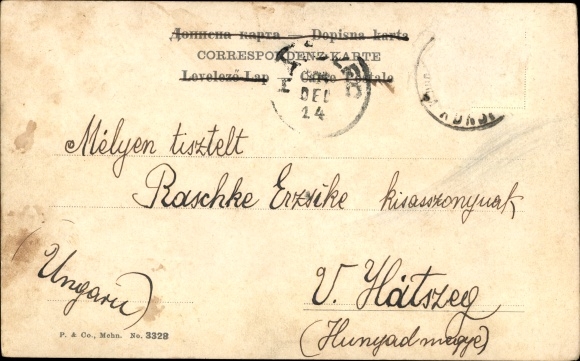 Дописна карта — Dopisna karta
CORRESPONDENZ-KARTE
Levelező-Lap — Carte postale
DEC
14
Mélyen tisztelt
Raschke Erzsike kisasszonynak
(Ungarn)
V. Hátszeg
(Hunyad megye)
P. & Co., Mchn. No. 3328